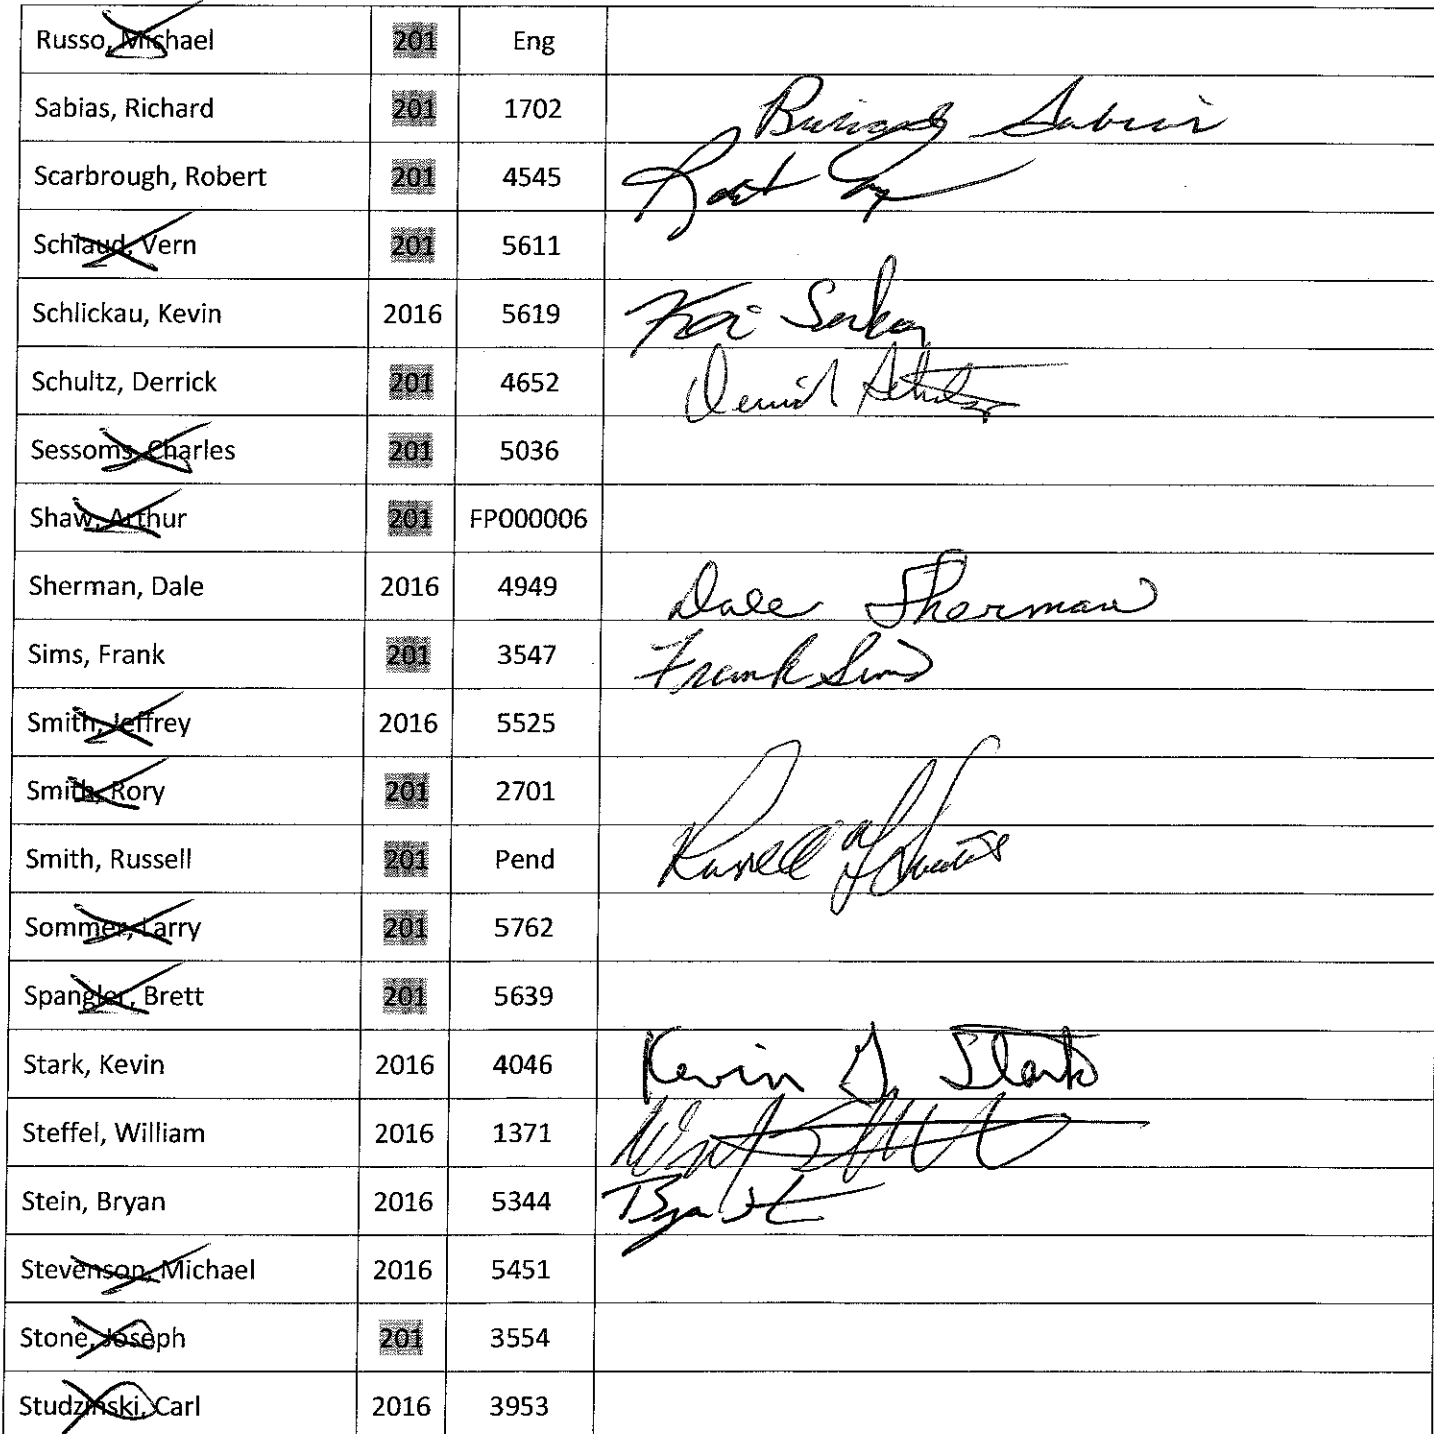 Russo, Michael 201 Eng
Sabias, Richard 201 1702 Sabias
Scarbrough, Robert 201 4545
Schlaud, Vern 201 5611
Schlickau, Kevin 2016 5619
Schultz, Derrick 201 4652 Derrick Schultz
Sessoms, Charles 201 5036
Shaw, Arthur 201 FP000006
Sherman, Dale 2016 4949 Dale Sherman
Sims, Frank 201 3547 Frank Sims
Smith, Jeffrey 2016 5525
Smith, Rory 201 2701
Smith, Russell 201 Pend Russell
Sommer, Larry 201 5762
Spangler, Brett 201 5639
Stark, Kevin 2016 4046 Kevin J. Stark
Steffel, William 2016 1371
Stein, Bryan 2016 5344
Stevenson, Michael 2016 5451
Stone, Joseph 201 3554
Studzinski, Carl 2016 3953